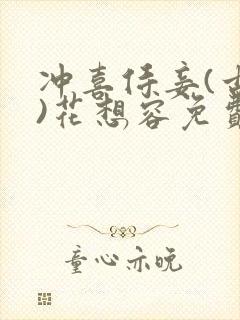 冲喜侍妾(古
)花想容免費
童心亦晚